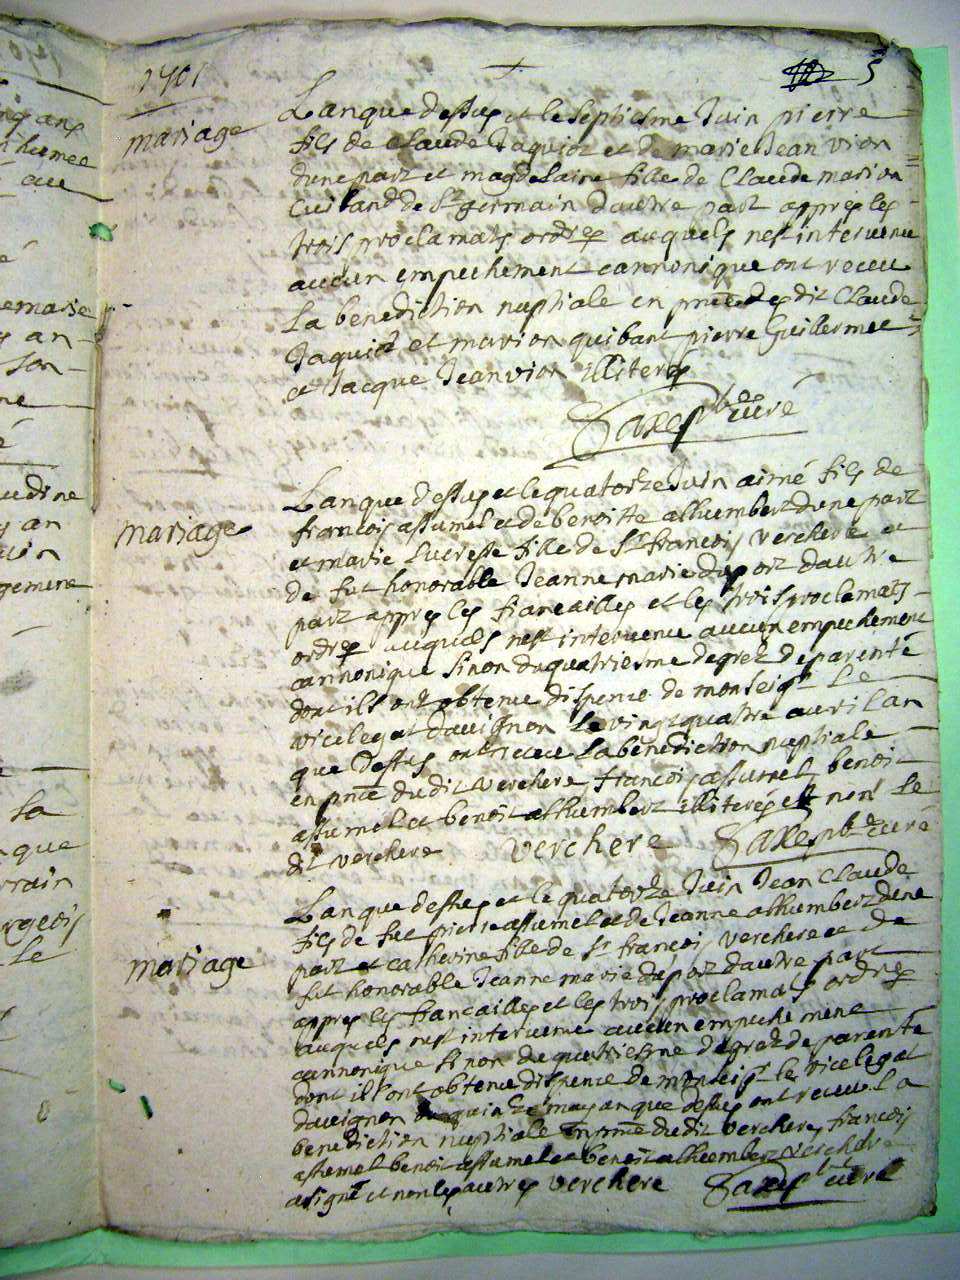 1701
5
mariage
Lan que dessus et le septiesme Juin pierre
fils de Claude Jaquiot et de marie Jeanvion
dune part et magdelaine fille de Claude marion
Cuiband de St germain dautre part appres les
trois proclamats ordres auquels nest intervenue
aucun empechement cannonique ont receu
La benediction nuptiale en pnce desdit Claude
Jaquiot et marion quibant pierre Guillermet
et Jacque Jeanvion illiteres
curé
mariage
Lan que dessus et le quatorze Juin aimé fils de
francois assumel et de benoitte alhumbert dune part
et marie Lucresse fille de Sr francois verchere et
de fut honorable Jeanne marie duport dautre
part appres les fiancailles et les trois proclamats
ordres auquels nest intervenue aucun empechement
cannonique sinon du quatriesme degrez de parenté
dont ils ont obtenu dispence de monseigr Le
vicelegat davignon le vingt quatre avril an
que dessus ont receu La benediction nuptiale
en pnce dudit verchere francois assumel benoit
assumel et benoit alhumbert illiteres et non Le
dit verchere verchere curé
mariage
Lan que dessus et le quatorze Juin Jean Claude
fils de fut pierre assumel et de Jeanne alhumbert dune
part et catherine fille de Sr francois verchere et de
fut honorable Jeanne marie duport dautre part
appres les fiancailles et les trois proclamats ordres
auquels nest intervenue aucun empechement
cannonique sinon du quatriesme degrez de parenté
dont ils ont obtenu dispence de monseigr le vicelegat
davignon quinze may an que dessus ont receu La
benediction nuptiale en pnce dudit verchere francois
assumel benoit assumel et benoit alhumbert verchere
a signé et non les autres verchere curé